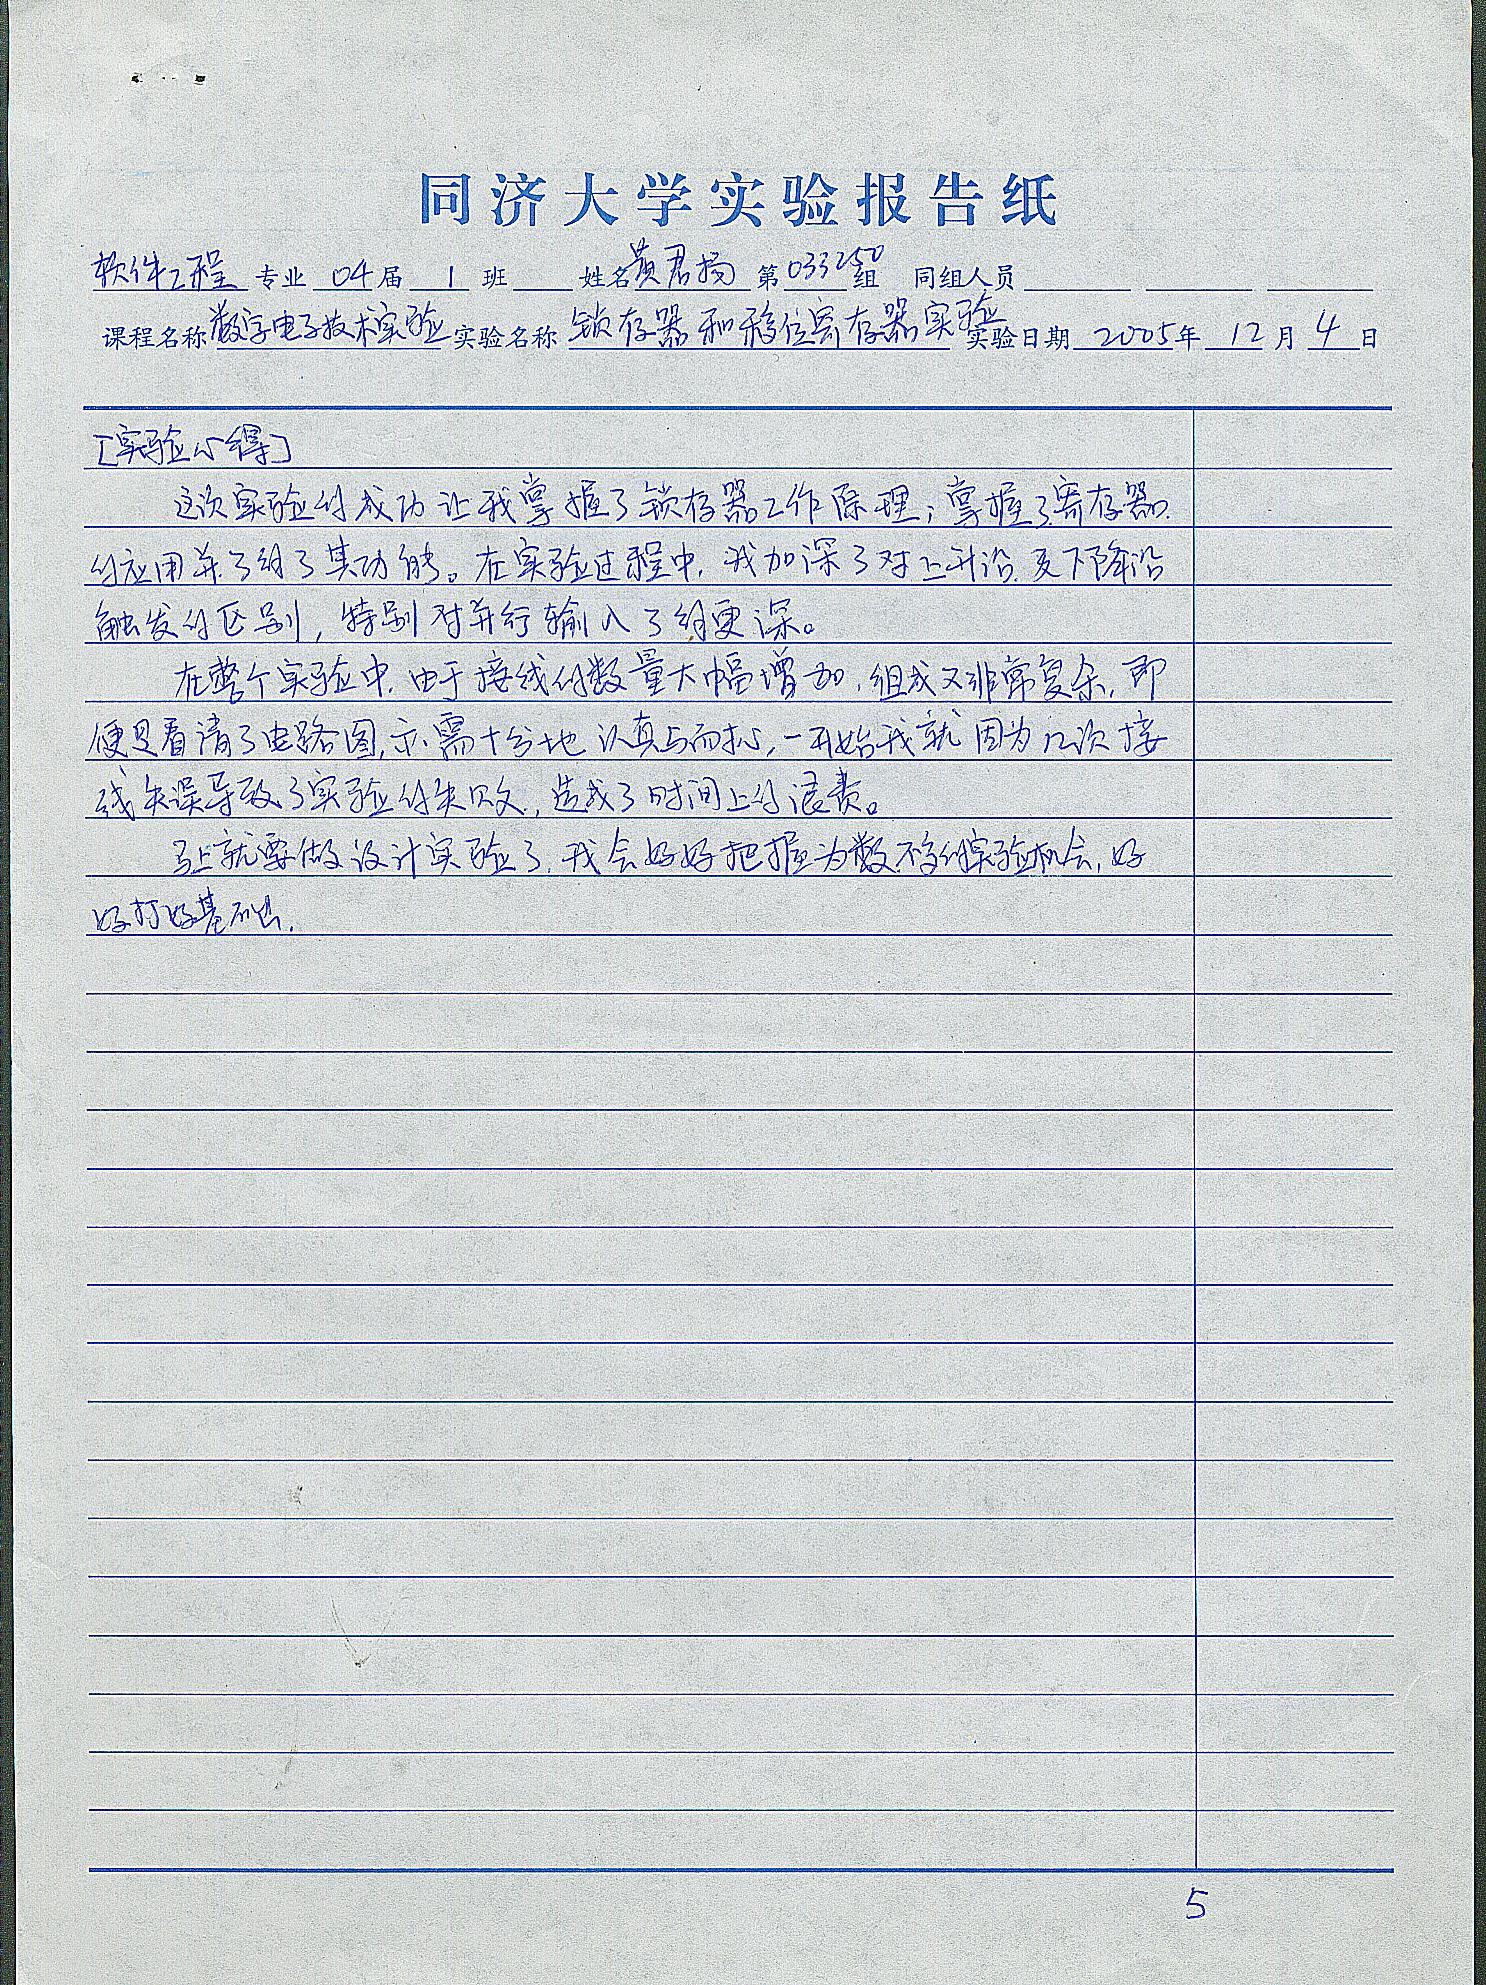 同济大学实验报告纸
软件工程 专业 04 届 1 班 姓名 黄君扬 第 033250 组 同组人员
课程名称 数字电子技术实验 实验名称 锁存器和移位寄存器实验 实验日期 2005 年 12 月 4 日
[实验心得]
这次实验的成功让我掌握了锁存器工作原理；掌握了寄存器
的应用并了解了其功能。在实验过程中，我加深了对上升沿及下降沿
触发的区别，特别对并行输入了解更深。
在整个实验中，由于接线的数量大幅增加，组成又非常复杂，即
便是看清了电路图，亦需十分地认真与而，一开始我就因为几次接
线失误导致了实验的失败，造成了时间上的浪费。
马上就要做设计实验了，我会好好把握为数不多的实验机会，好
好打好基础.
5